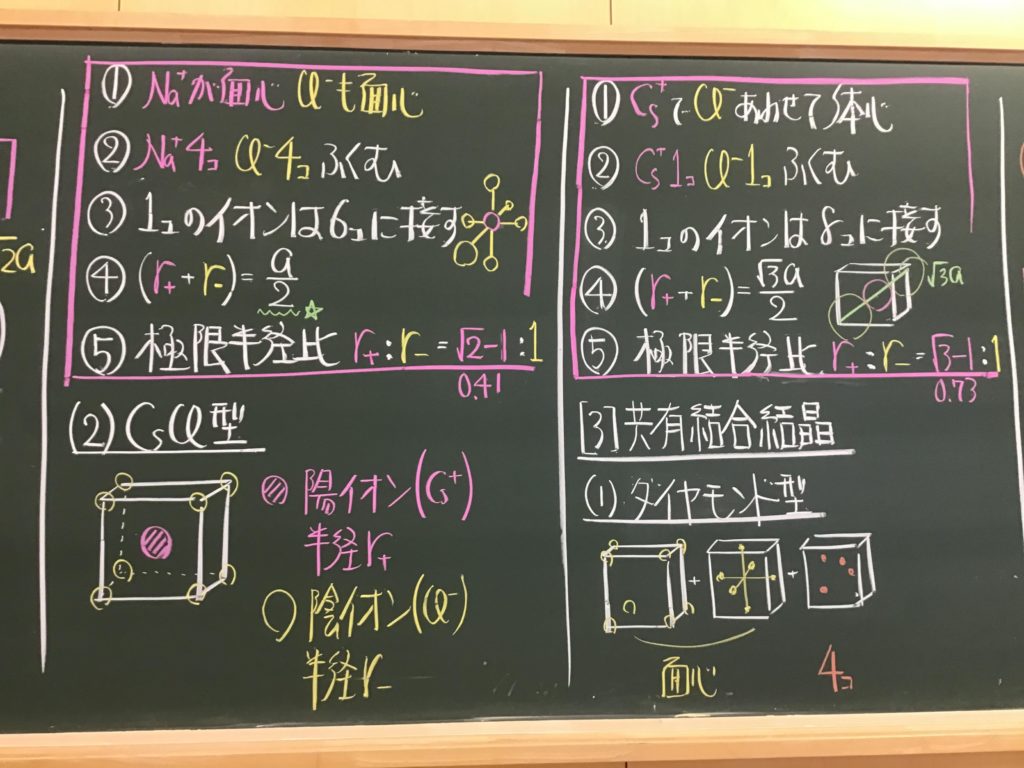 √2a
① Na⁺が面心 Cl⁻も面心
② Na⁺4コ Cl⁻4コ ふくむ
③ 1コのイオンは6コに接す
④ (r₊+r₋)=a/2
⑤ 極限半径比 r₊:r₋=√2-1:1
0.41
(2) CsCl型
陽イオン(Cs⁺)
半径r₊
陰イオン(Cl⁻)
半径r₋
① Cs⁺で Cl⁻ あわせて体心
② Cs⁺1コ Cl⁻1コ ふくむ
③ 1コのイオンは8コに接す
④ (r₊+r₋)=√3a/2
√3a
⑤ 極限半径比 r₊:r₋=√3-1:1
0.73
[3] 共有結合結晶
(1) ダイヤモンド型
+ +
面心 4コ